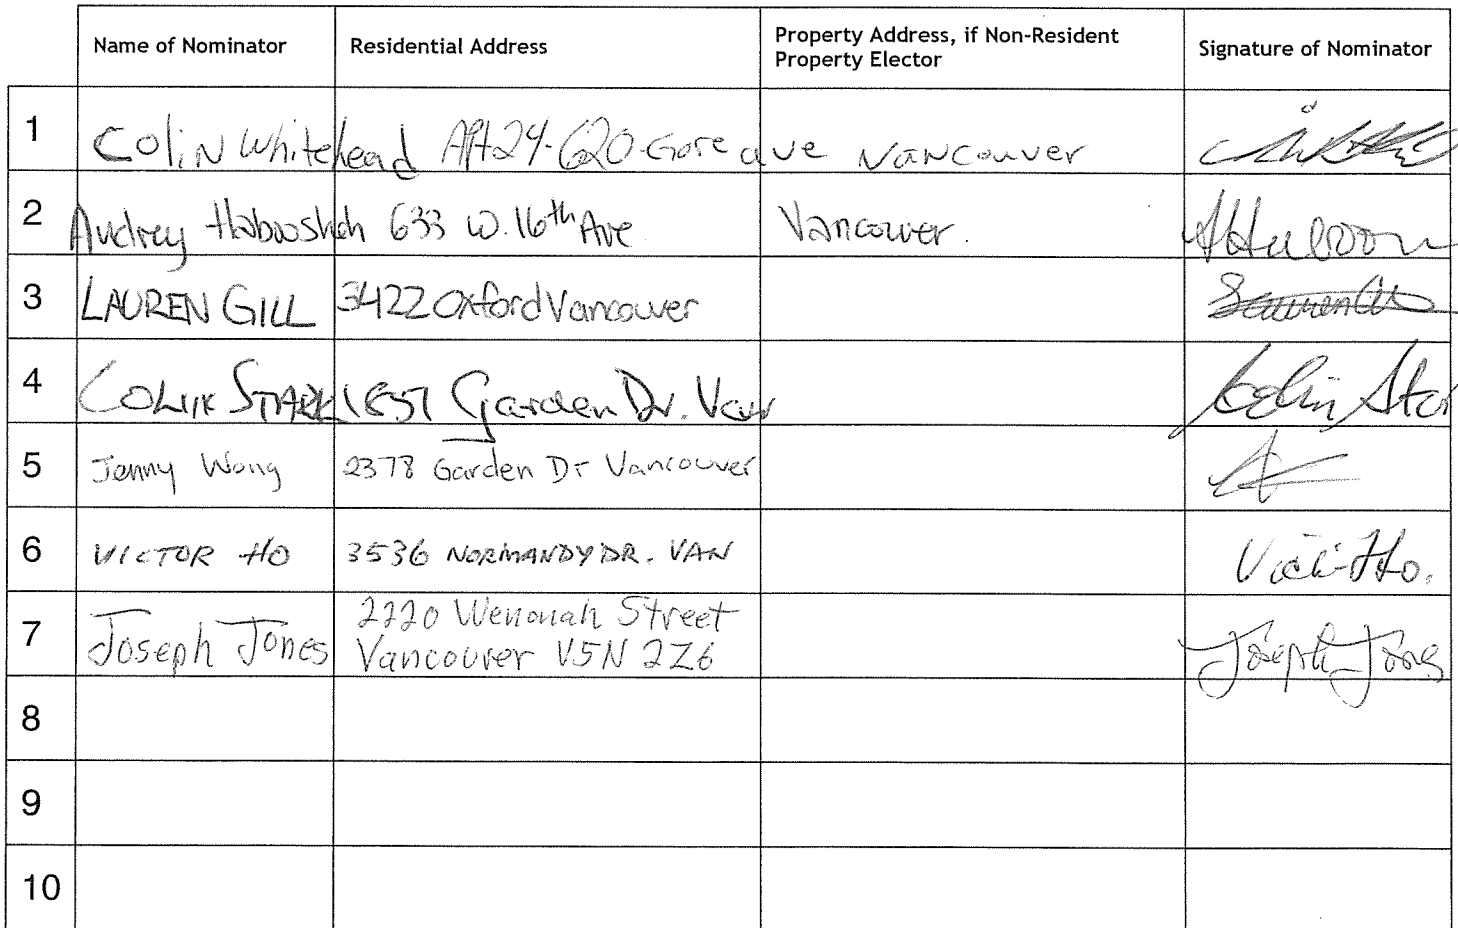 Name of Nominator Residential Address Property Address, if Non-Resident Property Elector Signature of Nominator
1 Colin Whitehead Apt 24-620-Gore ave Vancouver
2 Audrey 633 W. 16th Ave Vancouver.
3 LAUREN GILL 3422 Oxford Vancouver Lauren Gill
4 COLIN STARK 1837 Garden Dr. Van Colin Star
5 Jenny Wong 2378 Garden Dr Vancouver
6 VICTOR HO 3536 NORMANDY DR. VAN Ho.
7 Joseph Jones 2220 Wenonah Street
Vancouver V5N 2Z6 Joseph Jones
8
9
10